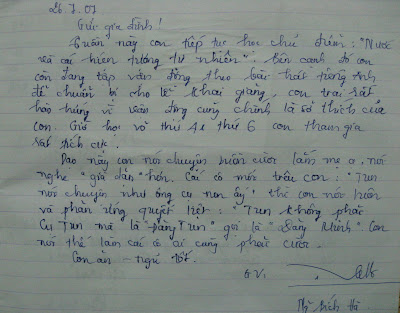 26.7.07
Gửi gia đình!
Tuần này con tiếp tục học chủ điểm: "Nước
và các hiện tượng tự nhiên". Bên cạnh đó con
còn đang tập vận động theo bài hát tiếng Anh
để chuẩn bị cho lễ khai giảng, con trai rất
hào hứng vì vận động cũng chính là sở thích của
con. Giờ học võ thứ 4 & thứ 6 con tham gia
rất tích cực.
Dạo này con nói chuyện buồn cười lắm mẹ ạ, nói
nghe "già dặn" hơn. Các cô mới trêu con: "Tun
nói chuyện như ông cụ non ấy" thì con nói luôn
và phản ứng quyết liệt: "Tun không phải
cụ Tun mà là Đăng Tun" gọi là "Đăng Minh" con
nói thế làm các cô ai cũng phải cười.
Con ăn - ngủ tốt.
GV.
Bích Hà